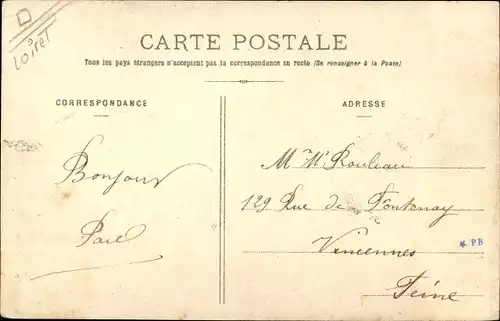 Loiret
CARTE POSTALE
Tous les pays étrangers n'acceptent pas la correspondance au recto (Se renseigner à la Poste).
CORRESPONDANCE
ADRESSE
Bonjour
Paul
Rouleau
129 Rue de Fontenay
Vincennes
Seine
PB